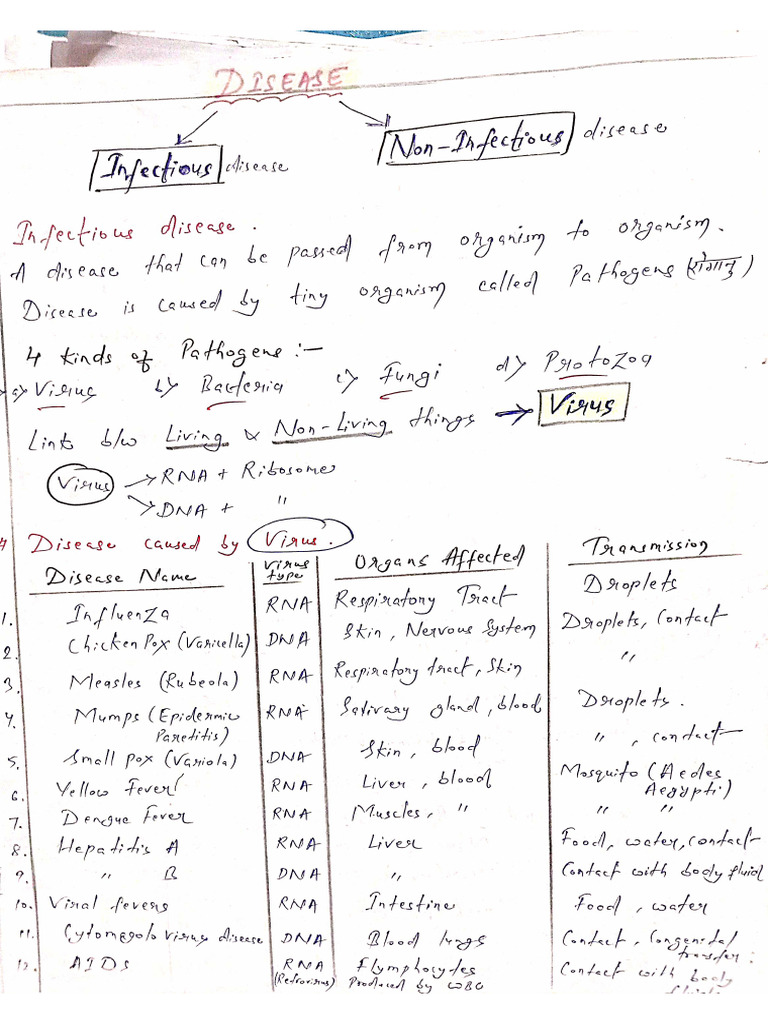 DISEASE
Infectious disease Non-Infectious disease
Infectious disease.
A disease that can be passed from organism to organism.
Disease is caused by tiny organism called Pathogens (रोगाणु)
4 kinds of Pathogens :-
a) Virus b) Bacteria c) Fungi d) Protozoa
Link b/w Living & Non-Living things → Virus
Virus → RNA + Ribosome
→ DNA + "
# Disease caused by Virus.
Disease Name Virus type Organs Affected Transmission
1. Influenza RNA Respiratory Tract Droplets
2. Chicken Pox (Varicella) DNA Skin, Nervous System Droplets, Contact
3. Measles (Rubeola) RNA Respiratory tract, Skin "
4. Mumps (Epidermic Paretitis) RNA Salivary gland, blood Droplets.
5. Small pox (Variola) DNA Skin, blood ", contact
6. Yellow Fever RNA Liver, blood Mosquito (Aedes Aegypti)
7. Dengue Fever RNA Muscles, " " "
8. Hepatitis A RNA Liver Food, water, contact
9. " B DNA " Contact with body fluid
10. Viral fevers RNA Intestine Food, water
11. Cytomegolo virus disease DNA Blood lungs Contact, Congenital transfer.
12. AIDS RNA (Retrovirus) lymphocytes Produced by WBC Contact with body